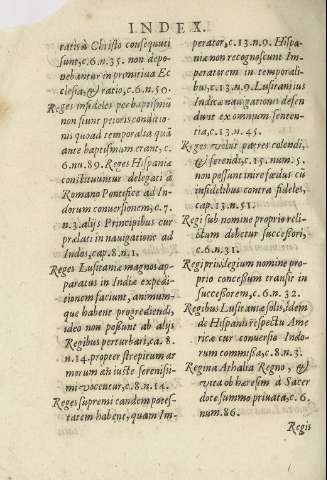 INDEX.
ratis à Christo consequuti
sunt, c. 6. n. 35. non depo-
nebantur in primitiua Ec
clesia, & ratio, c. 6. n. 50.
Reges infideles per baptismū
non fiunt petoris conditio
nis quoad temporalia quā
ante baptismum erant, c.
6. nu. 89. Reges Hispaniæ
constituuntur delegati à
Romano Pontifice ad In-
dorum conuersionem, c. 7.
n. 3. alijs Principibus cur
prælati in nauigatione ad
Indos, cap. 8. n. 1.
Reges Lusitaniæ magnos ap-
paratus in Indiæ expedi-
tionem faciunt, animum-
que habent progrediendi,
ideo non possunt ab alijs
Regibus perturbari, ca. 8.
n. 14. propter strepitum ar
morum an iuste serenissi-
mi vocentur, c. 8. n. 14.
Reges supremi eandem potes-
tatem habent, quam Im-
perator, c. 13. n. 9. Hispa-
niæ non recognoscunt Im-
peratorem in temporali-
bus, c. 13. n. 9. Lusitanius
Indicæ nauigationis defen
dunt ex omnium senten-
tia, c. 13. n. 45.
Reges velut patres colendi,
& ferendi, c. 15. num. 5.
non possunt inire fœdus cū
infidelibus contra fideles,
cap. 13. n. 51.
Regi sub nomine proprio reli-
ctum debetur successori,
c. 6. n. 31.
Regi priuilegium nomine pro-
prio concessum transit in
successorem, c. 6. n. 32.
Regibus Lusitaniæ solis, idem
de Hispani respectu Ame
ricæ cur conuersio Indo-
rum commissa, c. 8. n. 3.
Regina Athalia Regno, &
vita ob hæresim à Sacer
dote summo priuata, c. 6.
num. 86.
Regis